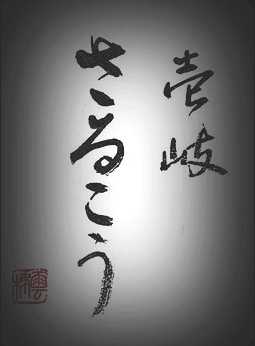 壱岐
さるこう